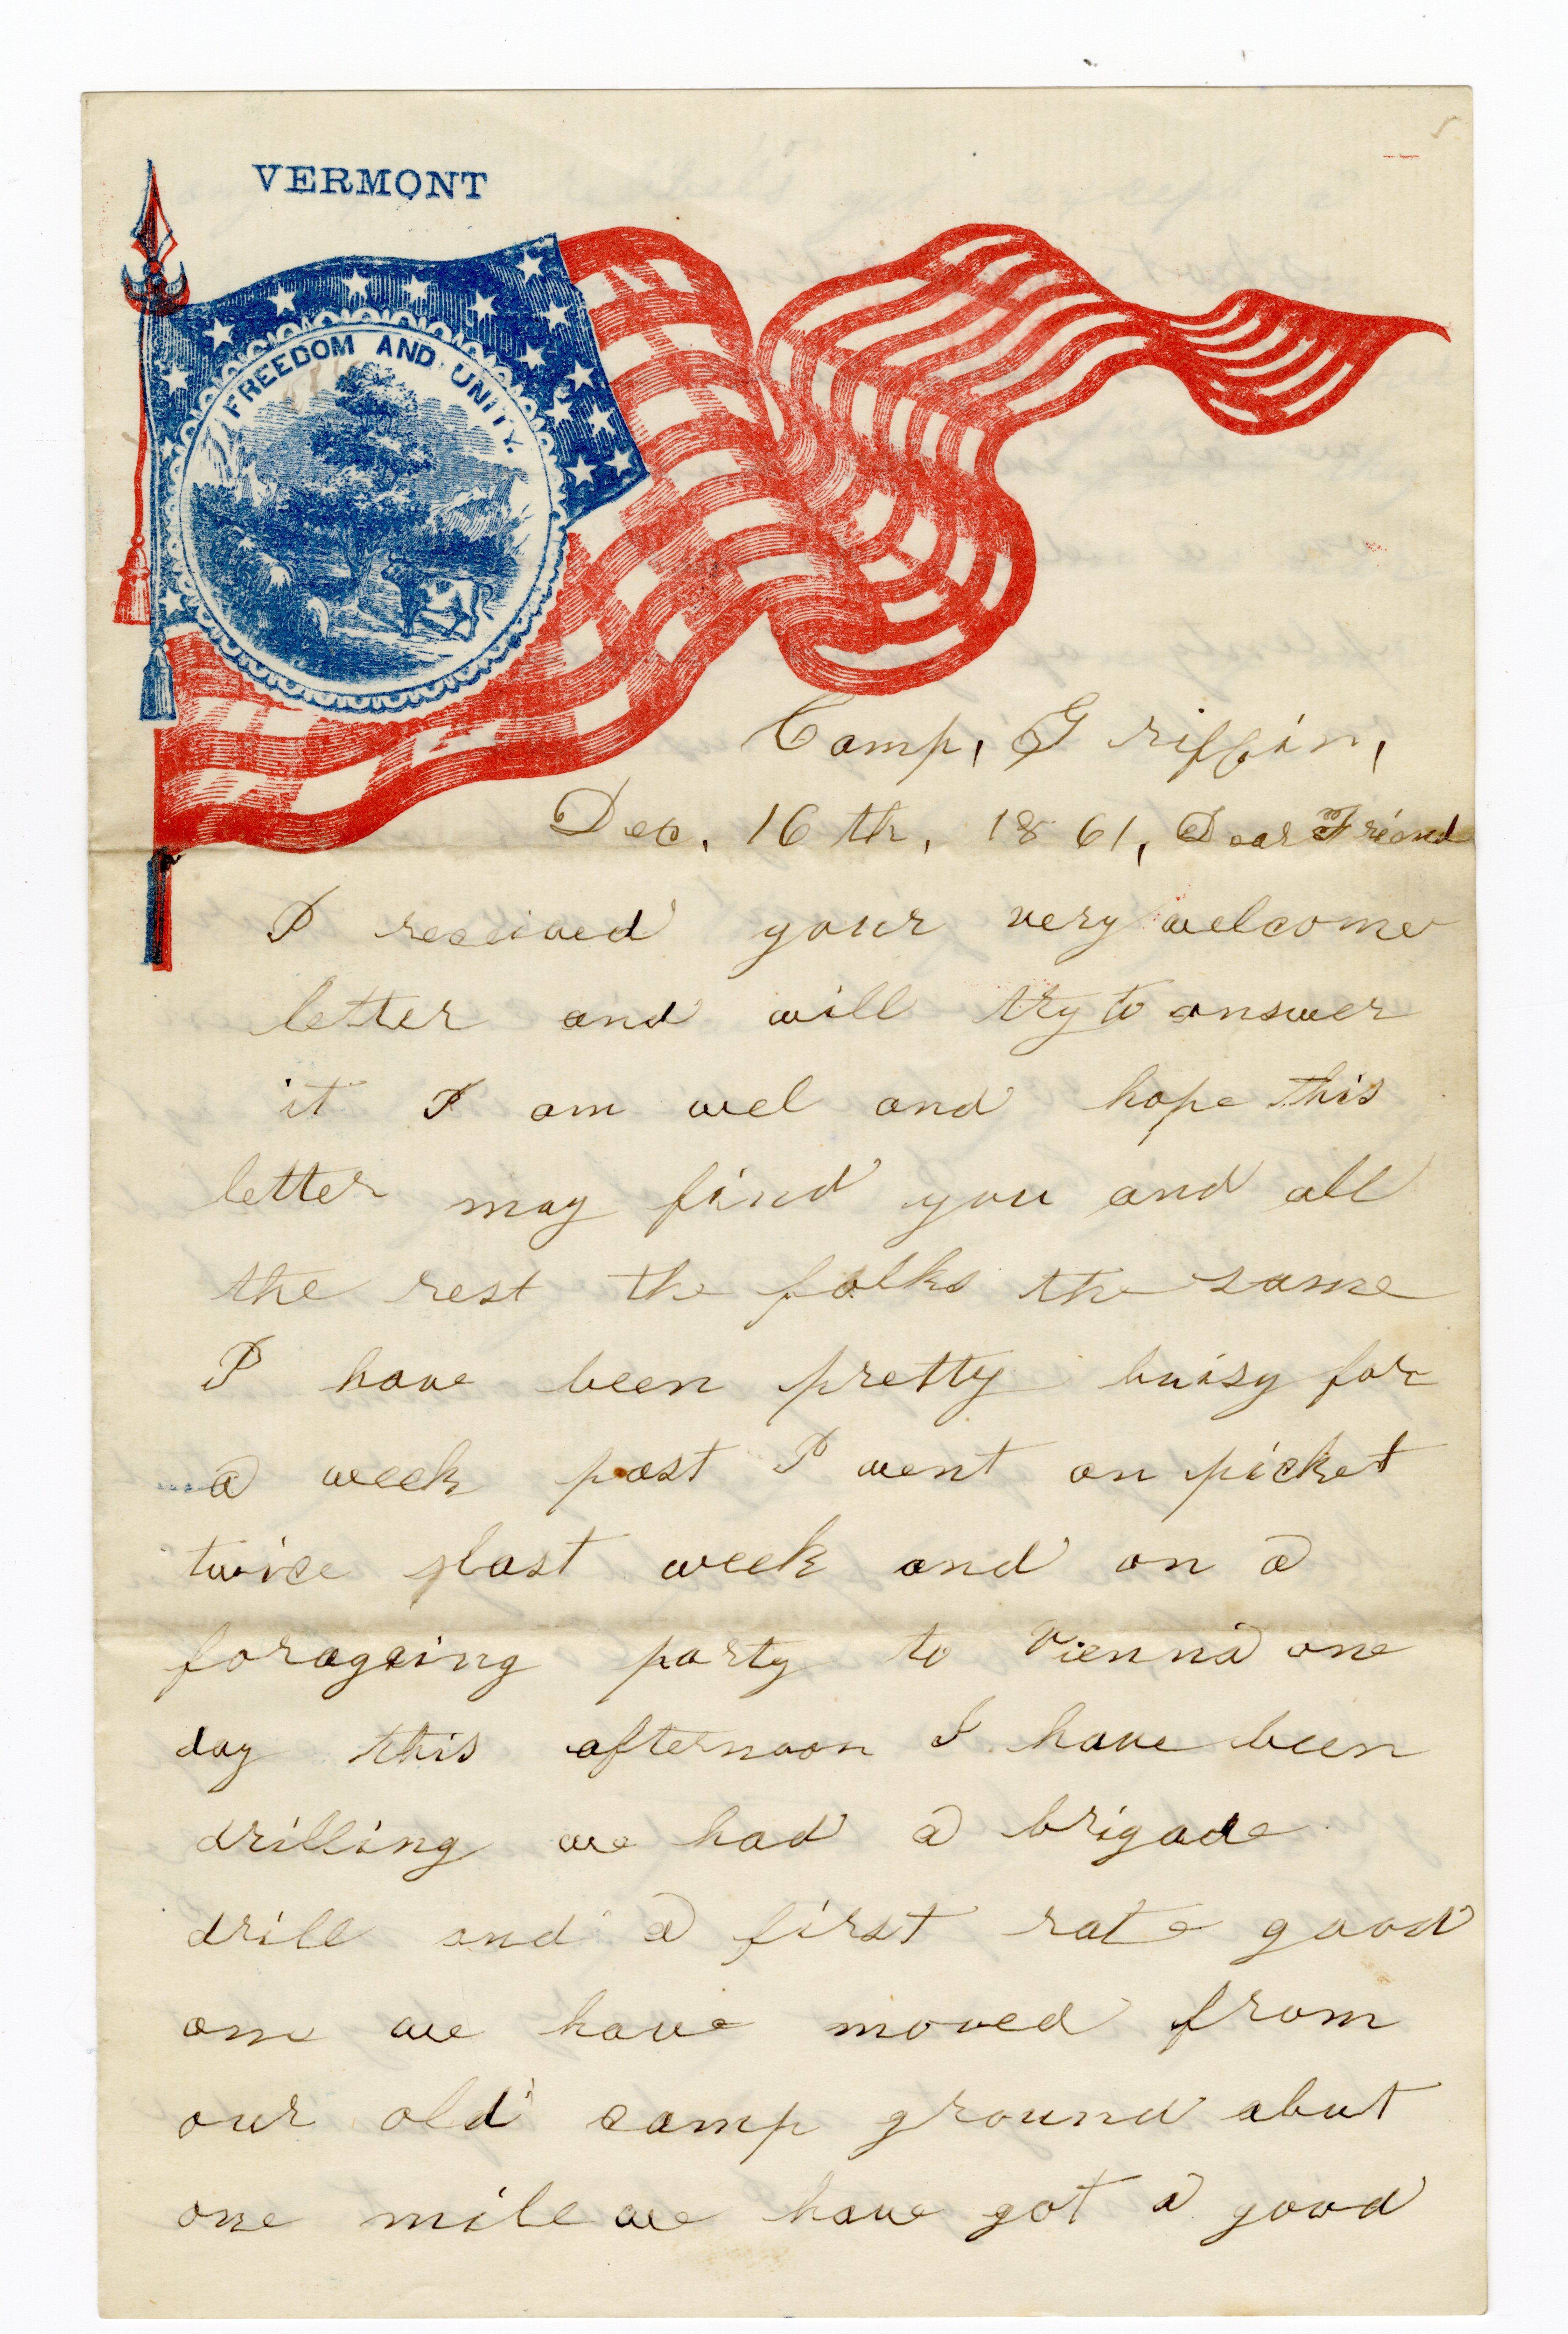 VERMONT
FREEDOM AND UNITY.
Camp, Griffin,
Dec, 16 th, 1861, Dear Friend
I received your very welcome
letter and will try to answer
it I am wel and hope this
letter may find you and all
the rest the folks the same
I have been pretty buisy for
a week past I went on picket
twice last week and on a
forageing party to Vienna one
day this afternoon I have been
drilling we had a brigade
drill and a first rate good
one we have moved from
our old camp ground abut
one mile we have got a good